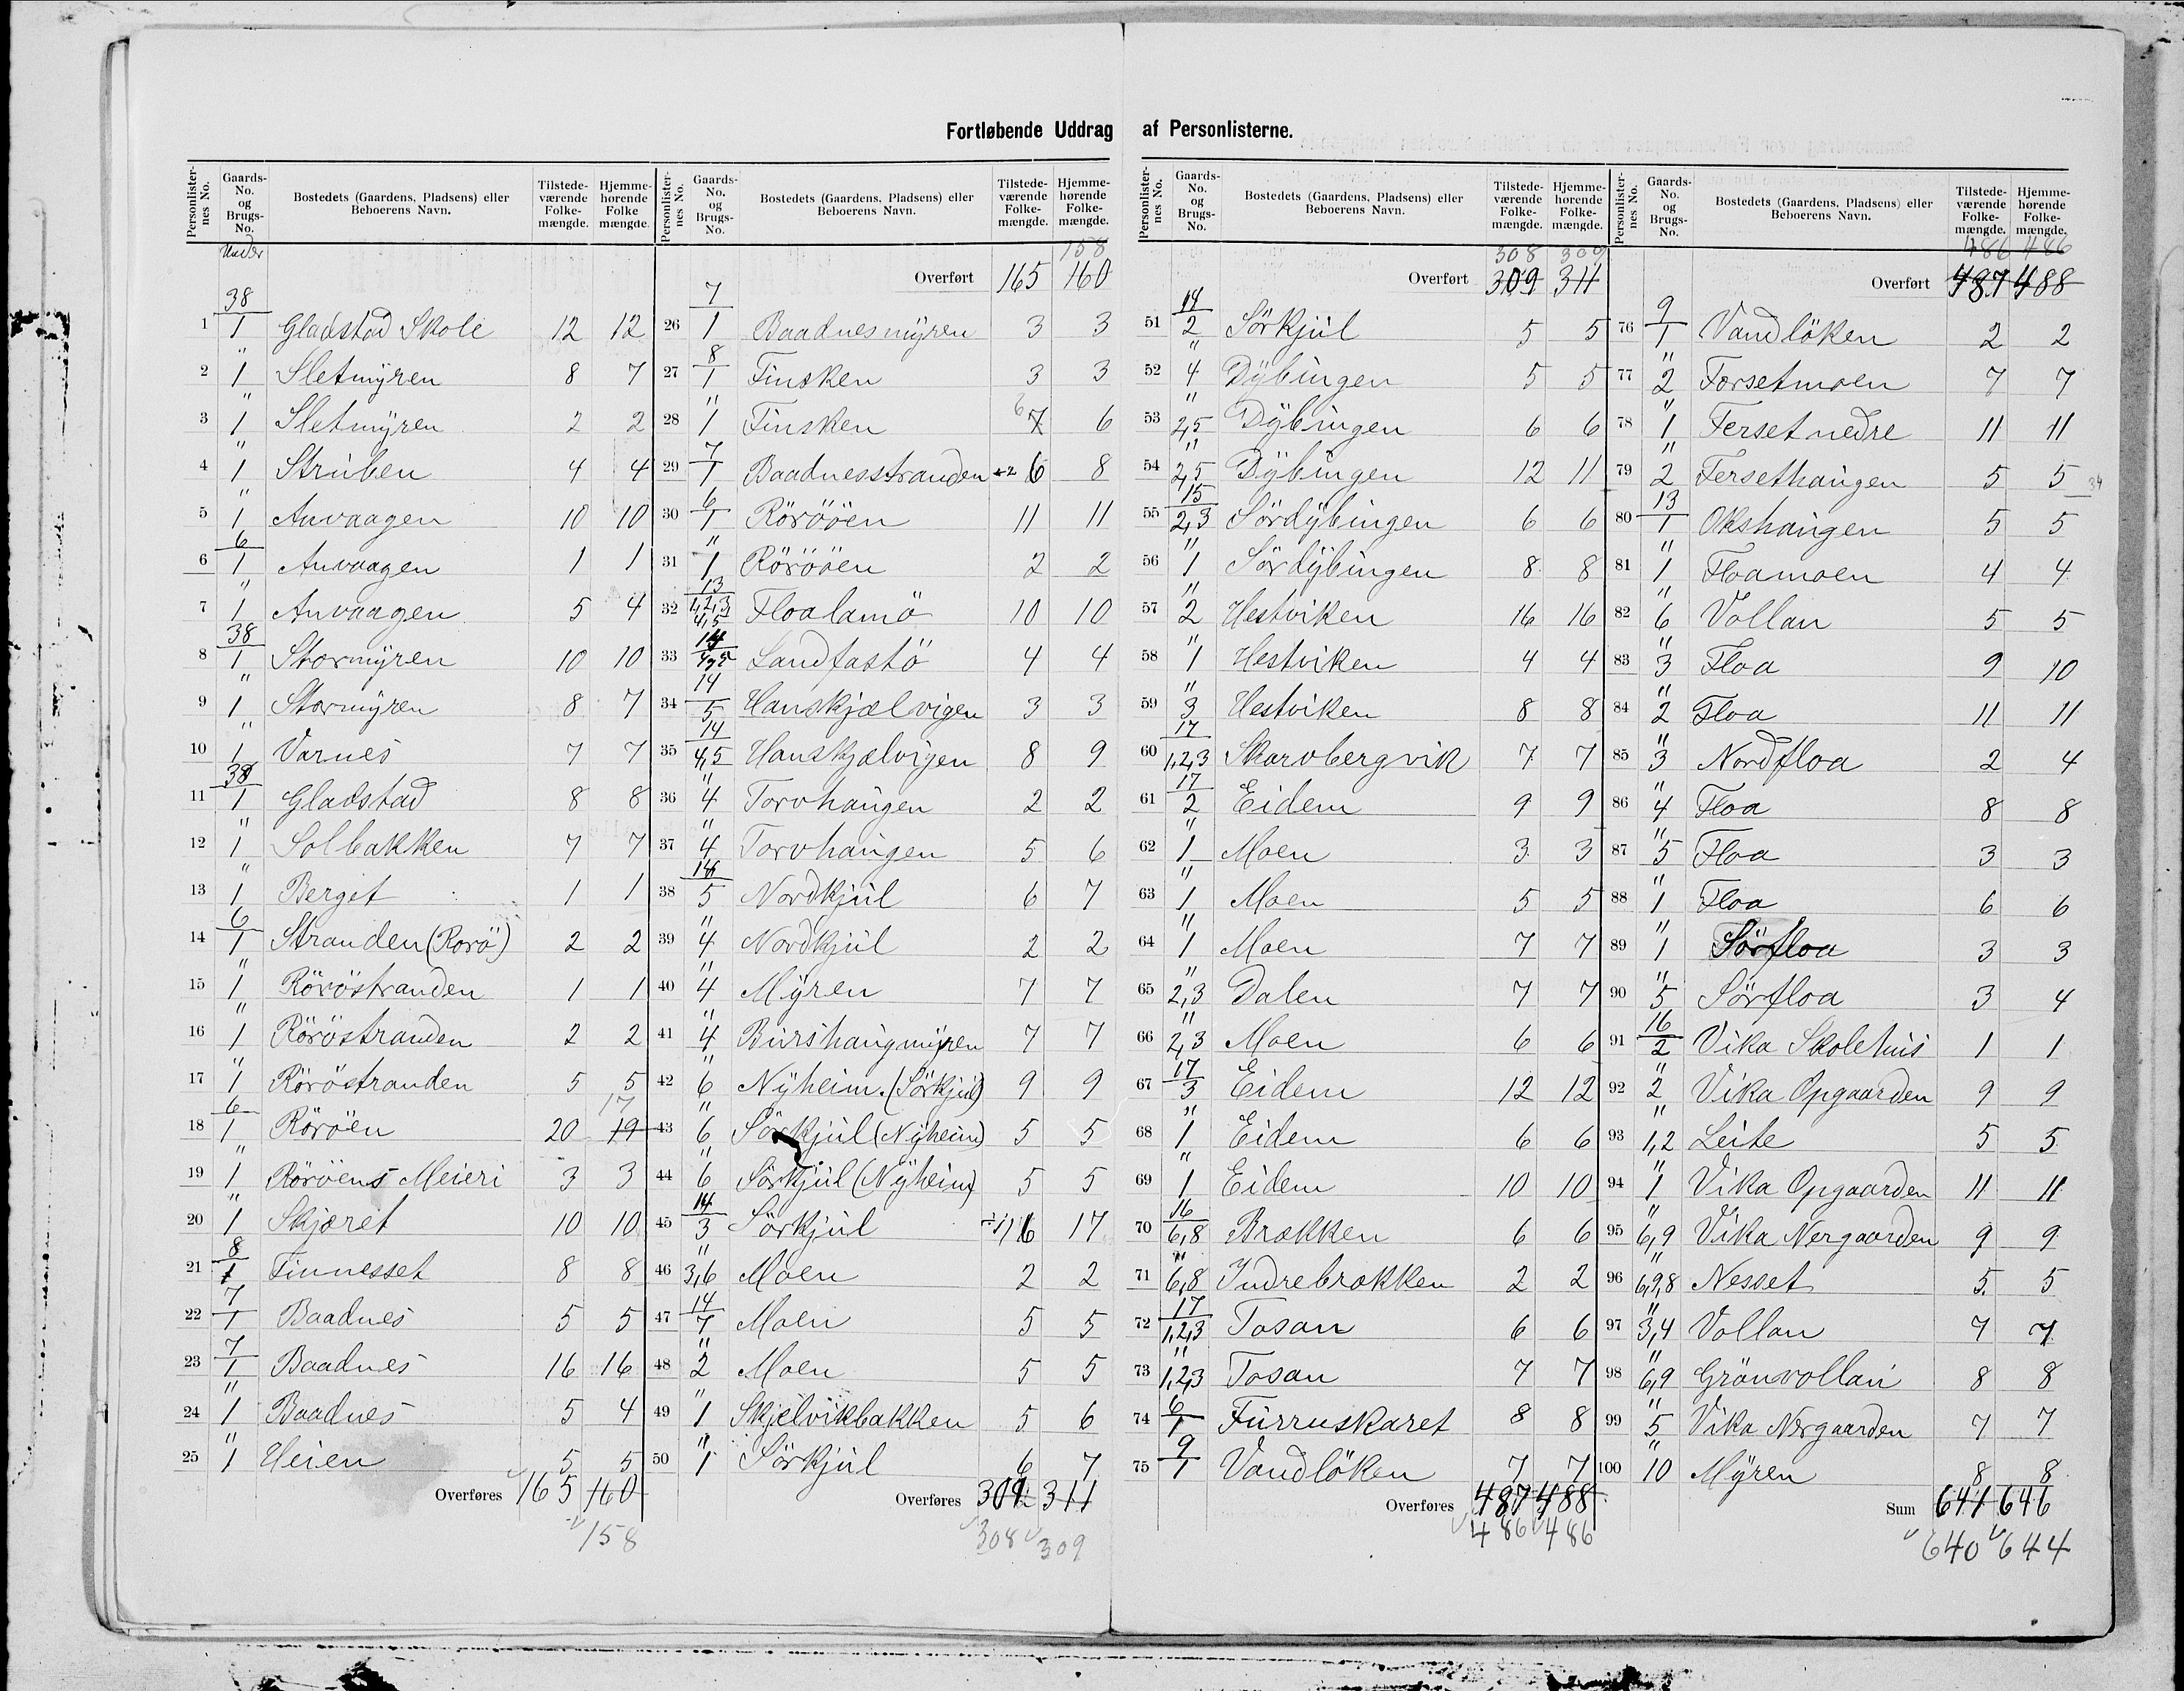 Fortløbende Uddrag af Personlisterne.
Personlister-nes No. Gaards-No. og Brugs-No. Bostedets (Gaardens, Pladsens) eller Beboerens Navn. Tilstede-værende Folke-mængde. Hjemme-hørende Folke mængde.
Under
38
1 1 Gladstad Skole 12 12
2 " 1 Sletmyren 8 7
3 " 1 Sletmyren 2 2
4 " 1 Struben 4 4
5 " 1 Anvaagen 10 10
6 6/1 Anvaagen 1 1
7 " 1 Anvaagen 5 4
8 38/1 Stormyren 10 10
9 " 1 Stormyren 8 7
10 " 1 Varnes 7 7
11 38/1 Gladstad 8 8
12 " 1 Solbakken 7 7
13 " 1 Berget 1 1
14 6/1 Stranden (Rorö) 2 2
15 " 1 Röröstranden 1 1
16 " 1 Röröstranden 2 2
17 " 1 Röröstranden 5 5
17
18 6/1 Röröen 20 19
19 " 1 Röröens Meieri 3 3
20 " 1 Skjæret 10 10
21 8/1 Finnesset 8 8
22 7/1 Baadnes 5 5
23 7/1 Baadnes 16 16
24 " 1 Baadnes 5 4
25 " 1 Heien 5 5
Overføres 165 160
158
Personlister-nes No. Gaards-No. og Brugs-No. Bostedets (Gaardens, Pladsens) eller Beboerens Navn. Tilstede-værende Folke-mængde. Hjemme-hørende Folke-mængde.
158
Overført 165 160
26 7/1 Baadnesmyren 3 3
27 8/1 Finsken 3 3
28 " 1 Finsken 6 7 6
29 7/1 Baadnesstranden +2 6 8
30 6/1 Rörööen 11 11
31 " 1 Rörööen 2 2
32 13/1,2,3 4,5 Floalamö 10 10
33 14/4,5 Landfastö 4 4
34 14/5 Hanskjælvigen 3 3
35 14/4,5 Hanskjælvigen 8 9
36 " 4 Torvhaugen 2 2
37 " 4 Torvhaugen 5 6
38 14/5 Nordkjul 6 7
39 " 4 Nordkjul 2 2
40 " 4 Myren 7 7
41 " 4 Burshaugmyren 7 7
42 " 6 Nyheim. (Sörkjul) 9 9
43 " 6 Sörkjul (Nyheim) 5 5
44 " 6 Sörkjul (Nyheim) 5 5
45 14/3 Sörkjul 16 17
46 " 3,6 Moen 2 2
47 14/7 Moen 5 5
48 " 2 Moen 5 5
49 " 1 Skjelvikbakken 5 6
50 " 1 Sörkjul 6 7
Overføres 309 311
308 309
Personlister-nes No. Gaards-No. og Brugs-No. Bostedets (Gaardens, Pladsens) eller Beboerens Navn. Tilstede-værende Folke-mængde. Hjemme-hørende Folke-mængde.
308 309
Overført 309 311
51 14/2 Sörkjul 5 5
52 " 4 Dybingen 5 5
53 " 2,5 Dybingen 6 6
54 " 2,5 Dybingen 12 11
55 15/2,3 Sördybingen 6 6
56 " 1 Sördybingen 8 8
57 " 2 Hestviken 16 16
58 " 1 Hestviken 4 4
59 " 3 Hestviken 8 8
60 17/1,2,3 Skarvbergvik 7 7
61 17/2 Eidem 9 9
62 " 1 Moen 3 3
63 " 1 Moen 5 5
64 " 1 Moen 7 7
65 " 2,3 Dalen 7 7
66 " 2,3 Moen 6 6
67 17/3 Eidem 12 12
68 " 1 Eidem 6 6
69 " 1 Eidem 10 10
70 16/6,8 Brækken 6 6
71 " 6,8 Indrebrækken 2 2
72 17/1,2,3 Tosan 6 6
73 " 1,2,3 Tosan 7 7
74 6/1 Furruskaret 8 8
75 9/1 Vandlöken 7 7
Overføres 487 488
486 486
Personlister-nes No. Gaards-No. og Brugs-No. Bostedets (Gaardens, Pladsens) eller Beboerens Navn. Tilstede-værende Folke-mængde. Hjemme-hørende Folke-mængde.
486 486
Overført 487 488
76 9/1 Vandlöken 2 2
77 " 2 Forsetmoen 7 7
78 " 1 Ferset nedre 11 11
79 " 2 Fersethaugen 5 5 34
80 13/1 Okshaugen 5 5
81 " 1 Floamoen 4 4
82 " 6 Vollan 5 5
83 " 3 Floa 9 10
84 " 2 Floa 11 11
85 " 3 Nordfloa 2 4
86 " 4 Floa 8 8
87 " 5 Floa 3 3
88 " 1 Floa 6 6
89 " 1 Sörfloa 3 3
90 " 5 Sörfloa 3 4
91 16/2 Vika Skolehus 1 1
92 " 2 Vika Opgaarden 9 9
93 " 1,2 Leite 5 5
94 " 1 Vika Opgaarden 11 11
95 " 6,9 Vika Nergaarden 9 9
96 " 6,9,8 Nesset 5 5
97 " 3,4 Vollan 7 7
98 " 6,9 Grönvollan 8 8
99 " 5 Vika Nergaarden 7 7
100 " 10 Myren 8 8
Sum 641 646
640 644